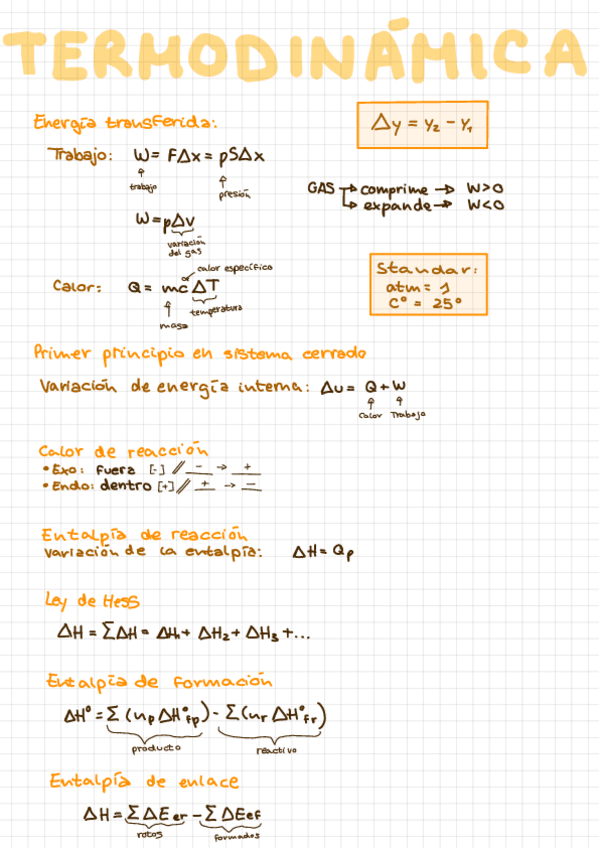 TERMODINÁMICA
Energía transferida:
Δy = Y₂ - Y₁
Trabajo: W = FΔx = pSΔx
trabajo
presión
GAS → comprime → W>0
↳ expande → W<0
W = pΔv
variación
del gas
calor específico
Calor: Q = mcΔT
temperatura
masa
Standar:
atm = 1
C° = 25°
Primer principio en sistema cerrado
Variación de energía interna: Δu = Q + W
Calor Trabajo
Calor de reacción
• Exo: fuera [-] // - → +
• Endo: dentro [+] // + → -
Entalpía de reacción
Variación de la entalpía: ΔH = Qp
Ley de Hess
ΔH = ΣΔH = ΔH₁ + ΔH₂ + ΔH₃ + ...
Entalpía de formación
ΔH° = Σ(npΔH°fp) - Σ(nrΔH°fr)
producto reactivo
Entalpía de enlace
ΔH = ΣΔEer - ΣΔEef
rotos formados